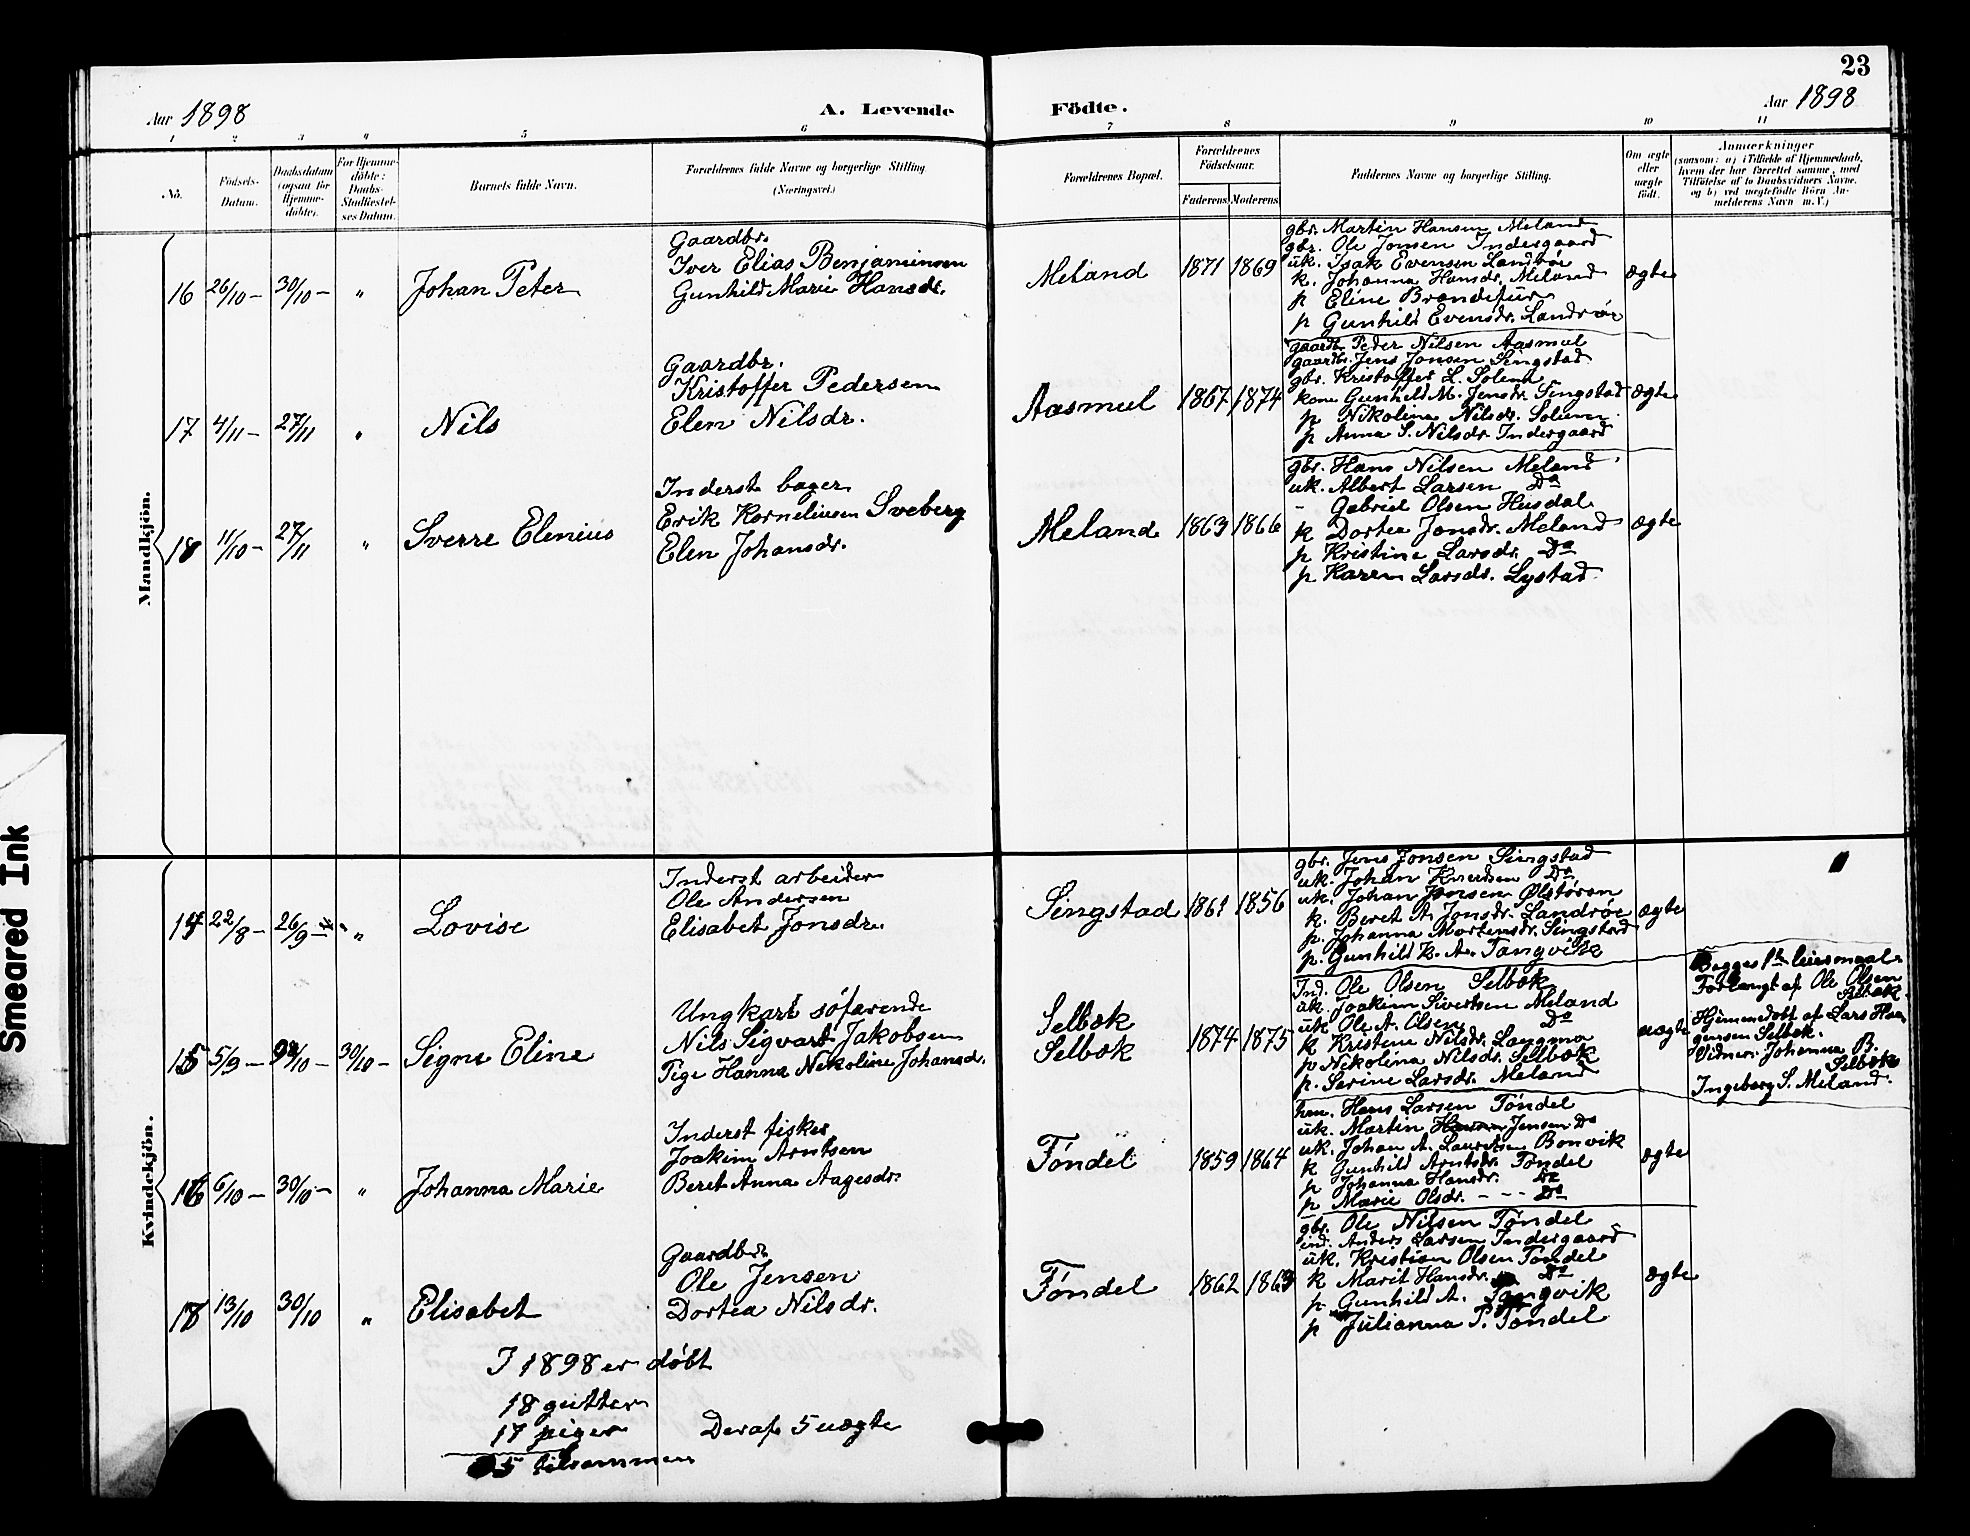 23
Aar 1898
A. Levende Födte.
Aar 1898
1 2 3 4 5 6 7 8 9 10 11
No.
Födsels-
Datum.
Daabsdatum
(ogsaa for
Hjemme-
döbte).
For Hjemme-
döbte:
Daabs-
Stadfæstel-
ses Datum.
Barnets fulde Navn.
Forældrenes fulde Navne og borgerlige Stilling
(Næringsvei.)
Forældrenes Bopæl.
Forældrenes
Födselsaar.
Faderens Moderens
Faddernes Navne og borgerlige Stilling.
Om ægte
eller
uægte
födt.
Anmærkninger
(saasom: a) i Tilfælde af Hjemmedaab,
hvem der har forrettet samme, med
Tilföielse af to Daabsvidners Navne,
og b) ved uægtefödte Börn An-
melderens Navn m. V.)
Mandkjön.
16 26/10 – 30/10 – " Johan Peter
Gaardbr.
Iver Elias Benjaminsen
Gunhild Marie Hansdr.
Meland 1871 1869
gbr. Martin Hansen Meland
gbr. Ole Jonsen Indergaard
uk. Isak Evensen Landrøe
k. Johanna Hansdr. Meland
p Eline Brandefur
p Gunhild Evensdr. Landrøe
ægte
17 4/11 – 27/11 " Nils
Gaardbr.
Kristoffer Pedersen
Elen Nilsdr.
Aasmul 1867 1874
gaardb. Peder Nilsen Aasmul
gaardbr. Jens Jonsen Singstad
gbr. Kristoffer L. Solem
kone Gunhild M. Jensdr. Singstad
p Nikolina Nilsdr. Solum
p Anna S. Nilsdr. Indergaard
ægte
18 11/10 – 27/11 " Sverre Elenius
Inderst bager
Erik Korneliusen Sveberg
Elen Johansdr.
Meland 1863 1866
gbr. Hans Nilsen Meland
uk. Albert Larsen Do
– Gabriel Olsen Husdal
k Dortea Jonsdr. Meland
p Kristine Larsdr. Do
p Karen Larsdr. Lystad
ægte
Kvindekjön.
14 22/8 – 26/9 – " Lovise
Inderst arbeider
Ole Andersen
Elisabet Jonsdr.
Singstad 1861 1856
gbr. Jens Jonsen Singstad
uk. Johan Knudsen Do
uk. Johan Jensen Ølstøren
k. Beret A. Jonsdr. Landrøe
p. Johanna Mortensdr. Singstad
p. Gunhild K. A. Tangvik
ægte
15 5/9 – 9/10 – 30/10 – Signe Eline
Ungkarl søfarende
Nils Sigvart Jakobsen
Pige Hanna Nikoline Johansd.
Selbok
Selbok
1874 1875
Ind. Ole Olsen Selbok
uk. Joakim Sivertsen Meland
uk Ole A. Olsen Do
k Kristine Nilsdr. Langmo
p Nikolina Nilsdr. Selbok
p. Serine Larsdr. Meland
uægte
Begges 1ste leiermaal
Forlangt af Ole Olsen
Selbok
Hjemmedobt af Lars Haa-
gensen Selbok.
Vidner: Johanna B.
Selbok
Ingeborg S. Meland.
16 6/10 – 30/10 – " Johanna Marie
Inderst fisker
Joakim Arntsen
Beret Anna Aagesdr.
Tøndel 1859 1864
Hans Larsen Tøndel
uk. Martin Jensen Do
uk. Johan A. Lauritsen Bonvik
k Gunhild Arntsdr. Tøndel
p Johanna Hansdr. Do
p Marie Olsdr. – – – Do
ægte
17 13/10 30/10 " Elisabet
Gaardbr.
Ole Jensen
Dortea Nilsdr.
Tøndel 1862 1863
gbr. Ole Nilsen Tøndel
ind. Anders Larsen Indergaard
uk. Kristian Olsen Tøndel
k Marit Hansdr. Do
p. Gunhild A. Tangvik
p Julianna P. Tøndel
ægte
I 1898 er døbt
18 gutter
17 piger Deraf 5 uægte
35 tilsammen
Smeared Ink